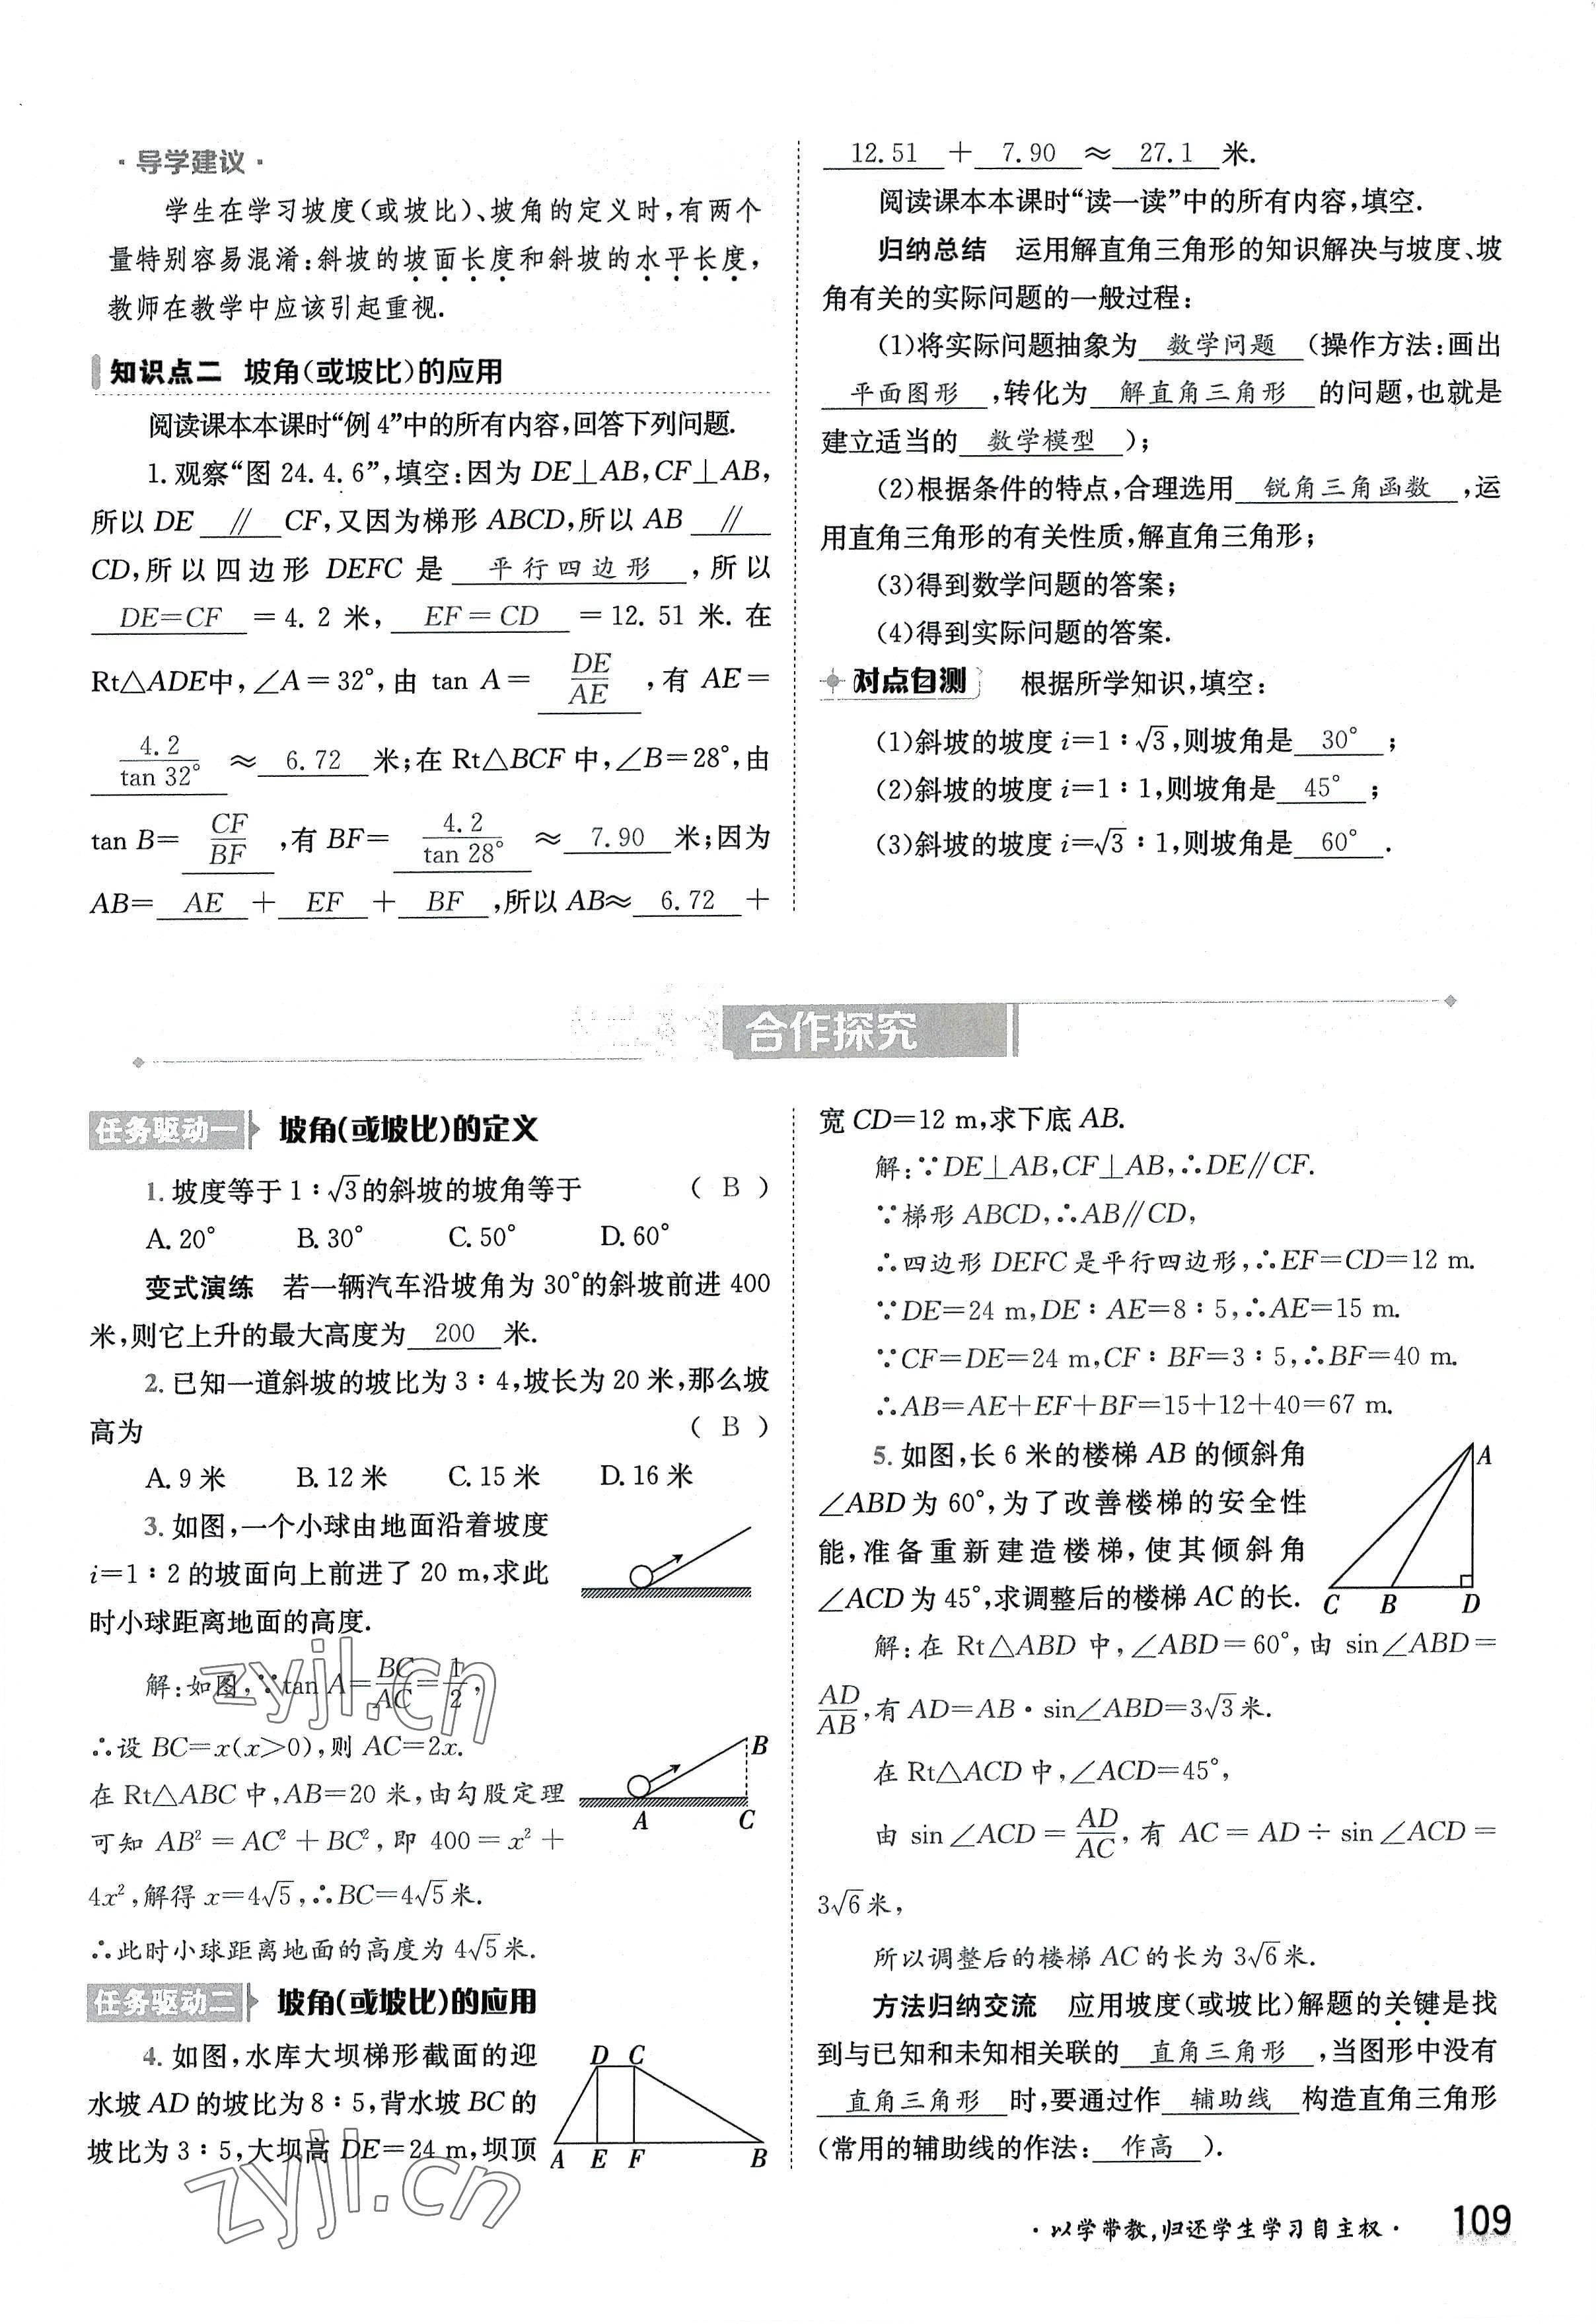 · 导学建议 ·
学生在学习坡度(或坡比)、坡角的定义时,有两个
量特别容易混淆:斜坡的坡面长度和斜坡的水平长度,
教师在教学中应该引起重视.
知识点二 坡角(或坡比)的应用
阅读课本本课时“例 4”中的所有内容,回答下列问题.
1. 观察“图 24. 4. 6”,填空:因为 DE⊥AB,CF⊥AB,
所以 DE // CF,又因为梯形 ABCD,所以 AB //
CD,所以四边形 DEFC 是 平行四边形 ,所以
DE=CF =4. 2 米, EF=CD =12. 51 米. 在
Rt△ADE中,∠A=32°,由 tan A= DE/AE ,有 AE=
4.2/tan 32° ≈ 6.72 米;在 Rt△BCF 中,∠B=28°,由
tan B= CF/BF ,有 BF= 4.2/tan 28° ≈ 7.90 米;因为
AB= AE + EF + BF ,所以 AB≈ 6.72 +
12.51 + 7.90 ≈ 27.1 米.
阅读课本本课时“读一读”中的所有内容,填空.
归纳总结 运用解直角三角形的知识解决与坡度、坡
角有关的实际问题的一般过程:
(1)将实际问题抽象为 数学问题 (操作方法:画出
平面图形 ,转化为 解直角三角形 的问题,也就是
建立适当的 数学模型 );
(2)根据条件的特点,合理选用 锐角三角函数 ,运
用直角三角形的有关性质,解直角三角形;
(3)得到数学问题的答案;
(4)得到实际问题的答案.
对点自测 根据所学知识,填空:
(1)斜坡的坡度 i=1∶√3,则坡角是 30° ;
(2)斜坡的坡度 i=1∶1,则坡角是 45° ;
(3)斜坡的坡度 i=√3∶1,则坡角是 60° .
合作探究
任务驱动一 坡角(或坡比)的定义
1. 坡度等于 1∶√3的斜坡的坡角等于 ( B )
A. 20° B. 30° C. 50° D. 60°
变式演练 若一辆汽车沿坡角为 30°的斜坡前进 400
米,则它上升的最大高度为 200 米.
2. 已知一道斜坡的坡比为 3∶4,坡长为 20 米,那么坡
高为 ( B )
A. 9 米 B. 12 米 C. 15 米 D. 16 米
3. 如图,一个小球由地面沿着坡度
i=1∶2 的坡面向上前进了 20 m,求此
时小球距离地面的高度.
解:如图,∵tan A=BC/AC=1/2,
∴设 BC=x(x>0),则 AC=2x.
在 Rt△ABC 中,AB=20 米,由勾股定理
可知 AB²=AC²+BC²,即 400=x²+
4x²,解得 x=4√5,∴BC=4√5米.
∴此时小球距离地面的高度为 4√5米.
B
A C
任务驱动二 坡角(或坡比)的应用
4. 如图,水库大坝梯形截面的迎
水坡 AD 的坡比为 8∶5,背水坡 BC 的
坡比为 3∶5,大坝高 DE=24 m,坝顶
D C
A E F B
宽 CD=12 m,求下底 AB.
解:∵DE⊥AB,CF⊥AB,∴DE//CF.
∵梯形 ABCD,∴AB//CD,
∴四边形 DEFC 是平行四边形,∴EF=CD=12 m.
∵DE=24 m,DE∶AE=8∶5,∴AE=15 m.
∵CF=DE=24 m,CF∶BF=3∶5,∴BF=40 m.
∴AB=AE+EF+BF=15+12+40=67 m.
5. 如图,长 6 米的楼梯 AB 的倾斜角
∠ABD 为 60°,为了改善楼梯的安全性
能,准备重新建造楼梯,使其倾斜角
∠ACD 为 45°,求调整后的楼梯 AC 的长.
A
C B D
解:在 Rt△ABD 中,∠ABD=60°,由 sin∠ABD=
AD/AB,有 AD=AB·sin∠ABD=3√3米.
在 Rt△ACD 中,∠ACD=45°,
由 sin∠ACD=AD/AC,有 AC=AD÷sin∠ACD=
3√6米,
所以调整后的楼梯 AC 的长为 3√6米.
方法归纳交流 应用坡度(或坡比)解题的关键是找
到与已知和未知相关联的 直角三角形 ,当图形中没有
直角三角形 时,要通过作 辅助线 构造直角三角形
(常用的辅助线的作法: 作高 ).
· 以学带教,归还学生学习自主权 · 109
zyjl.cn
zyjl.cn